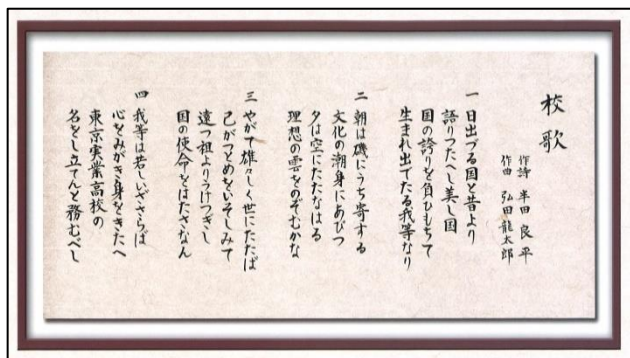 校歌
作詩 半田良平
作曲 弘田龍太郎
一 日出づる国と昔より
語りつたへし美し国
国の誇りを負ひもちて
生まれ出でたる我等なり
二 朝は磯にうち寄する
文化の潮身にあびつ
夕は空にたたなはる
理想の雲をのぞむかな
三 やがて雄々しく世にたたば
己がつとめをいそしみて
遠つ祖よりうけつぎし
国の使命をはたさなん
四 我等は若しいざさらば
心をみがき身をきたへ
東京実業高校の
名をし立てんと務むべし